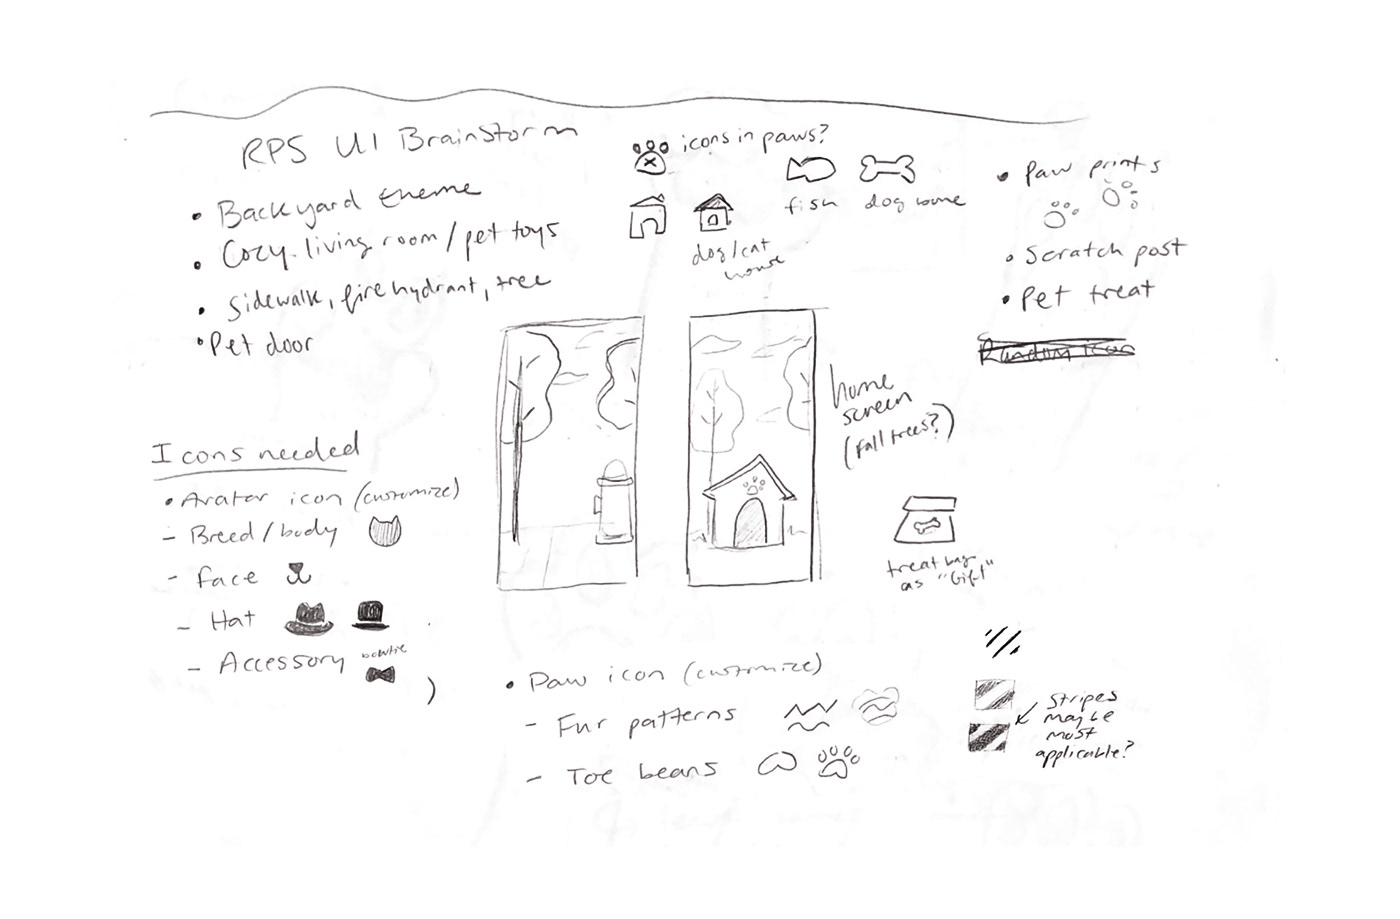 RPS UI Brainstorm
• Backyard theme
• Cozy living room / pet toys
• Sidewalk, fire hydrant, tree
• Pet door
icons in paws?
fish
dog bone
dog/cat
house
• Paw prints
• Scratch post
• Pet treat
Random icon
home
screen
(Fall trees?)
treat bag
as "Gift"
Icons needed
• Avatar icon (customize)
- Breed / body
- Face
- Hat
- Accessory
bowtie
)
• Paw icon (customize)
- Fur patterns
- Toe beans
Stripes
maybe
most
applicable?